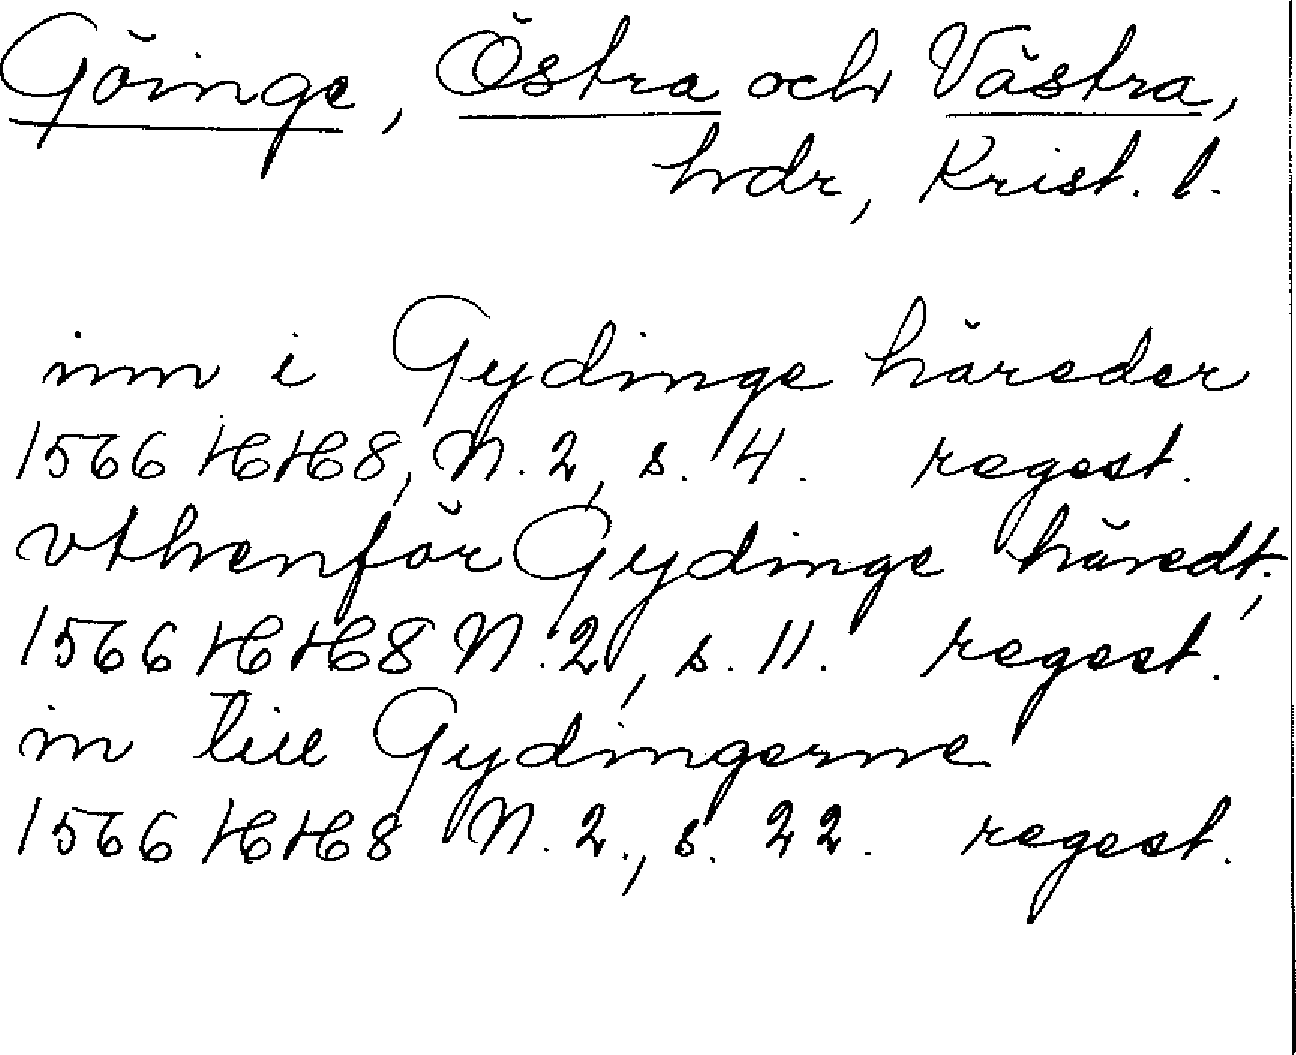 Göinge, Östra och Västra,
hdr, Krist. l.
inn i Gydinge häreder
1566 HH 8, N. 2, s. 4. regest.
vthenför Gydinge häredt;
1566 HH 8 N. 2, s. 11. regest.
in till Gydingerne
1566 HH 8 N. 2., s. 22. regest.